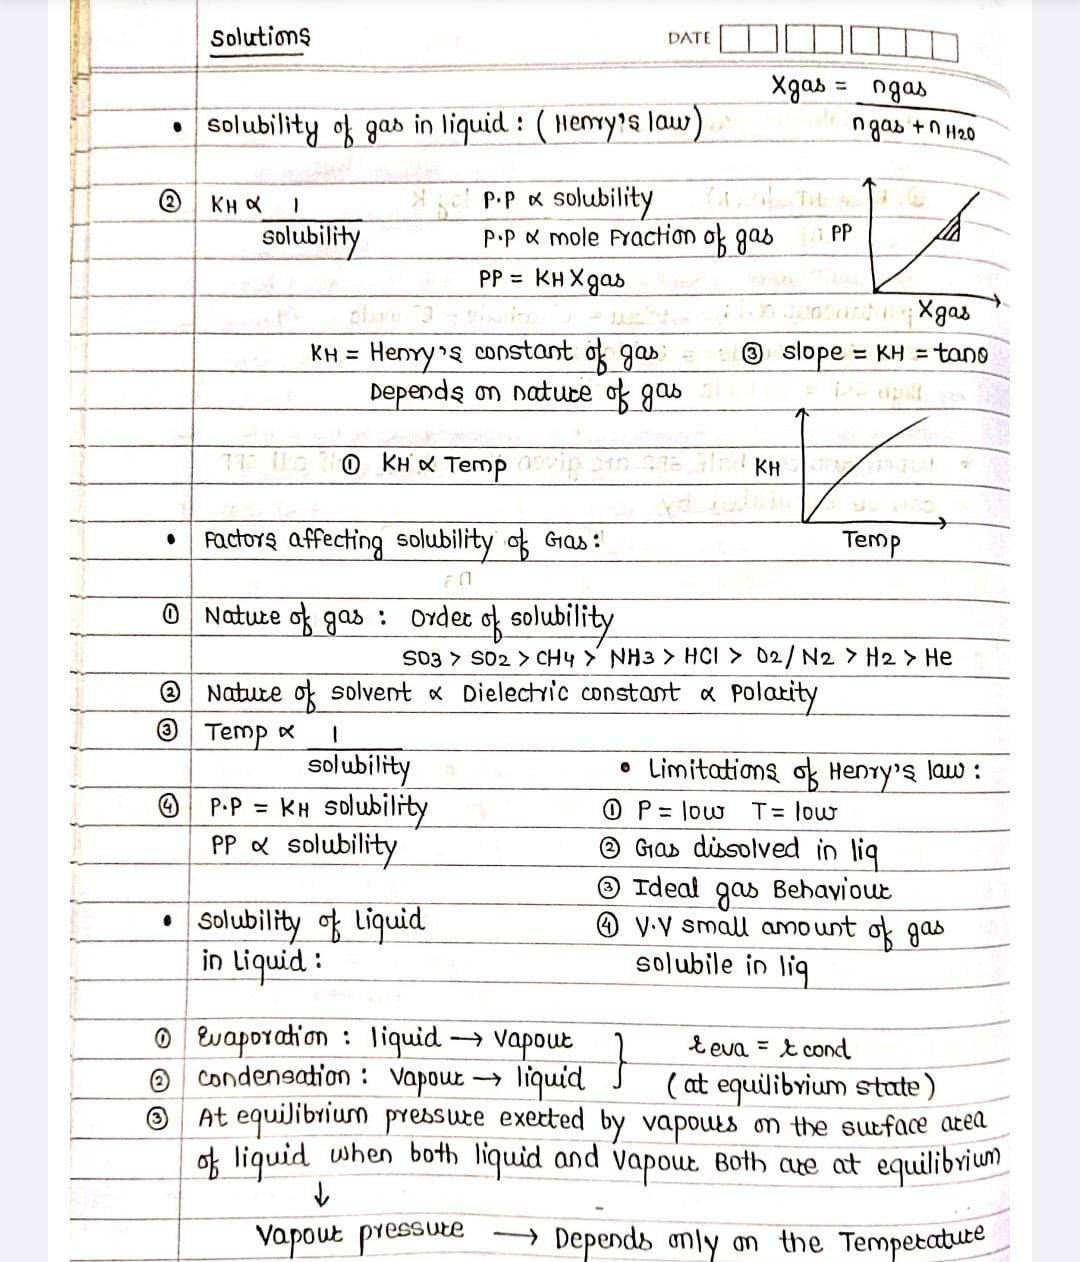 Solutions
DATE
Xgas = ngas
ngas + nH2O
• Solubility of gas in liquid : ( Henry's law )
② KH ∝ 1
solubility
P.P ∝ solubility
P.P ∝ mole Fraction of gas
PP = KH Xgas
PP
Xgas
KH = Henry's constant of gas
Depends on nature of gas
③ slope = KH = tanθ
① KH ∝ Temp
KH
Temp
• Factors affecting solubility of Gas :
① Nature of gas : Order of solubility
SO3 > SO2 > CH4 > NH3 > HCl > O2/ N2 > H2 > He
② Nature of solvent ∝ Dielectric constant ∝ Polarity
③ Temp ∝ 1
solubility
④ P.P = KH solubility
PP ∝ solubility
• Limitations of Henry's law :
① P = low T = low
② Gas dissolved in liq
③ Ideal gas Behaviour
④ V.V small amount of gas
solubile in liq
• Solubility of Liquid
in Liquid :
① Evaporation : liquid → Vapour
② Condensation : Vapour → liquid
r eva = r cond
( at equilibrium state )
③ At equilibrium pressure exerted by vapours on the surface area
of liquid when both liquid and Vapour Both are at equilibrium
↓
Vapour pressure → Depends only on the Temperature